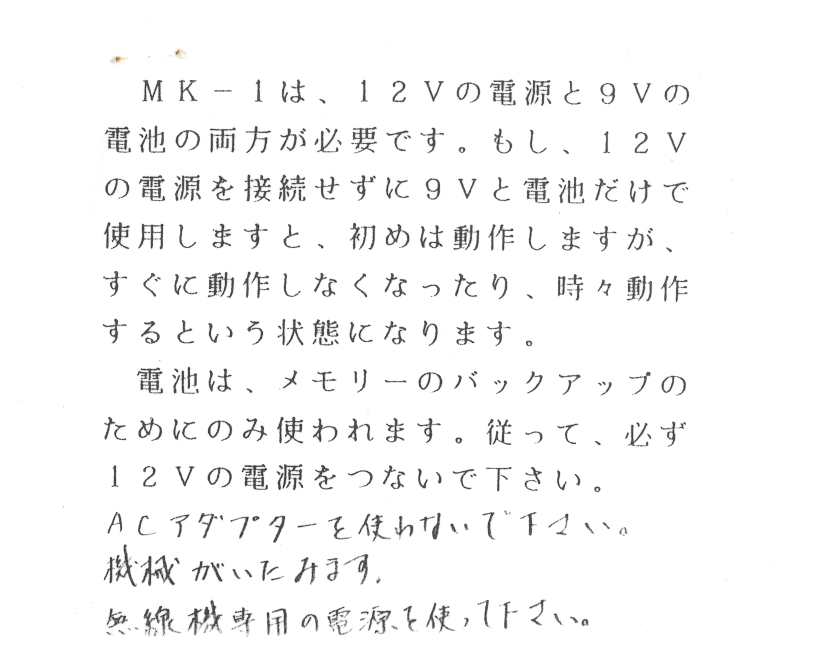 MK−1は、12Vの電源と9Vの
電池の両方が必要です。もし、12V
の電源を接続せずに9Vと電池だけで
使用しますと、初めは動作しますが、
すぐに動作しなくなったり、時々動作
するという状態になります。
電池は、メモリーのバックアップの
ためにのみ使われます。従って、必ず
12Vの電源をつないで下さい。
ACアダプターを使わないで下さい。
機械がいたみます.
無線機専用の電源を使って下さい。